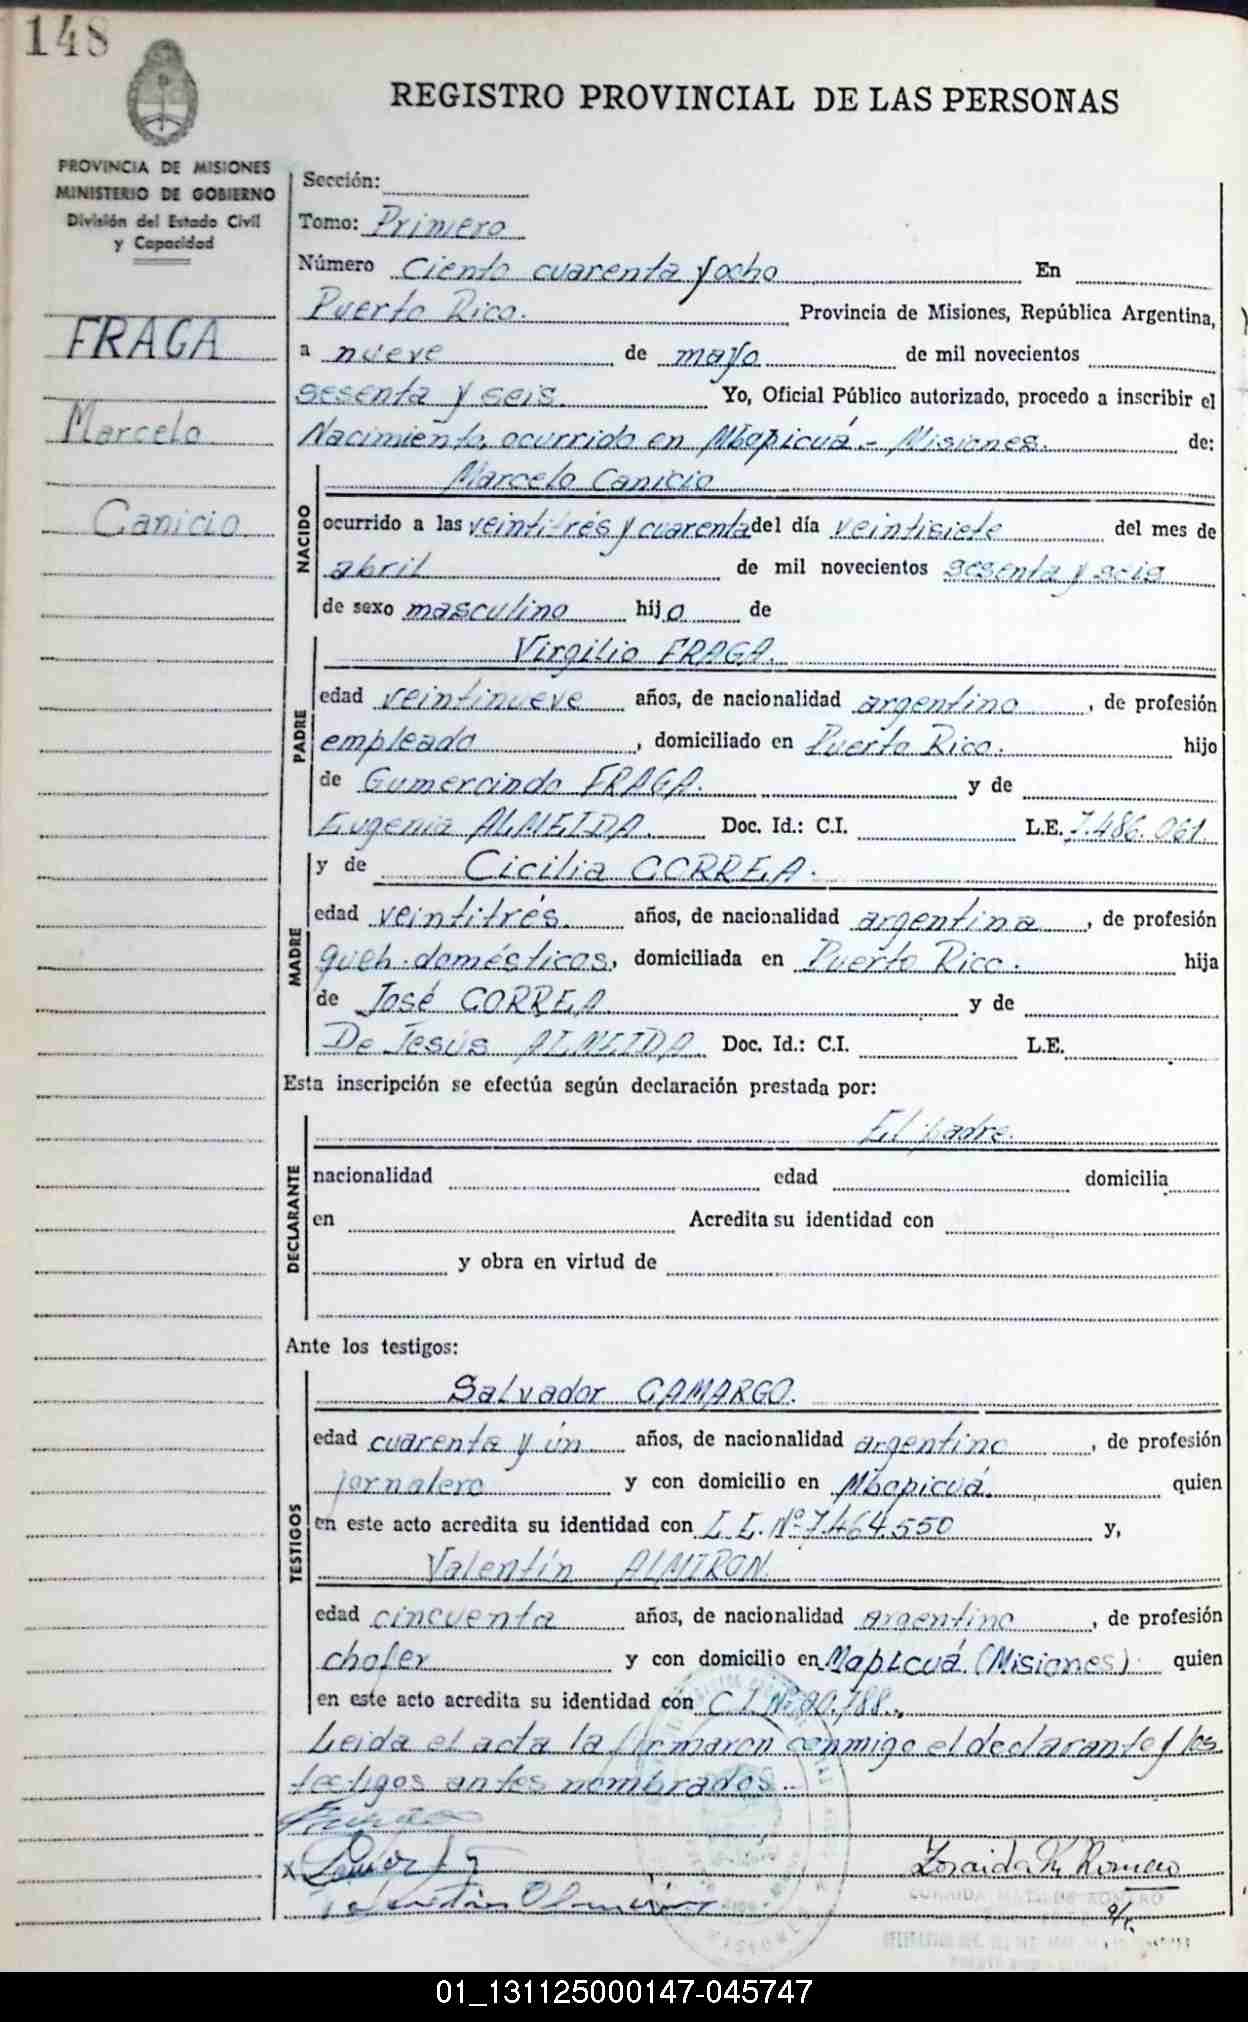 148
REGISTRO PROVINCIAL DE LAS PERSONAS
PROVINCIA DE MISIONES
MINISTERIO DE GOBIERNO
División del Estado Civil
y Capacidad
FRAGA
Marcelo
Canicio
Sección:
Tomo: Primero
Número Ciento cuarenta y ocho En
Puerto Rico. Provincia de Misiones, República Argentina,
a nueve de mayo de mil novecientos
sesenta y seis. Yo, Oficial Público autorizado, procedo a inscribir el
Nacimiento, ocurrido en Mbopicuá - Misiones. de:
NACIDO
Marcelo Canicio
ocurrido a las veintitrés y cuarenta del día veintisiete del mes de
abril de mil novecientos sesenta y seis
de sexo masculino hijo de
PADRE
Virgilio FRAGA.
edad veintinueve años, de nacionalidad argentino, de profesión
empleado, domiciliado en Puerto Rico. hijo
de Gumercindo FRAGA. y de
Eugenia ALMEIDA. Doc. Id.: C.I. L.E. 7.486.061.
MADRE
y de Cicilia CORREA.
edad veintitrés. años, de nacionalidad argentina, de profesión
queh. domésticos, domiciliada en Puerto Rico. hija
de José CORREA. y de
De Jesús ALMEIDA Doc. Id.: C.I. L.E.
Esta inscripción se efectúa según declaración prestada por:
DECLARANTE
El padre.
nacionalidad edad domicilia
en Acredita su identidad con
y obra en virtud de
Ante los testigos:
TESTIGOS
Salvador CAMARGO.
edad cuarenta y ún años, de nacionalidad argentino, de profesión
jornalero y con domicilio en Mbopicuá. quien
en este acto acredita su identidad con L.E. Nº 7.464.550 y,
Valentín ALMIRON.
edad cincuenta años, de nacionalidad argentino, de profesión
chofer y con domicilio en Mopicuá. (Misiones) quien
en este acto acredita su identidad con C.I. Nº 90.788.
Leida el acta la firmaron conmigo el declarante y los
testigos antes nombrados.
Zoraida M. Romero
01_131125000147-045747